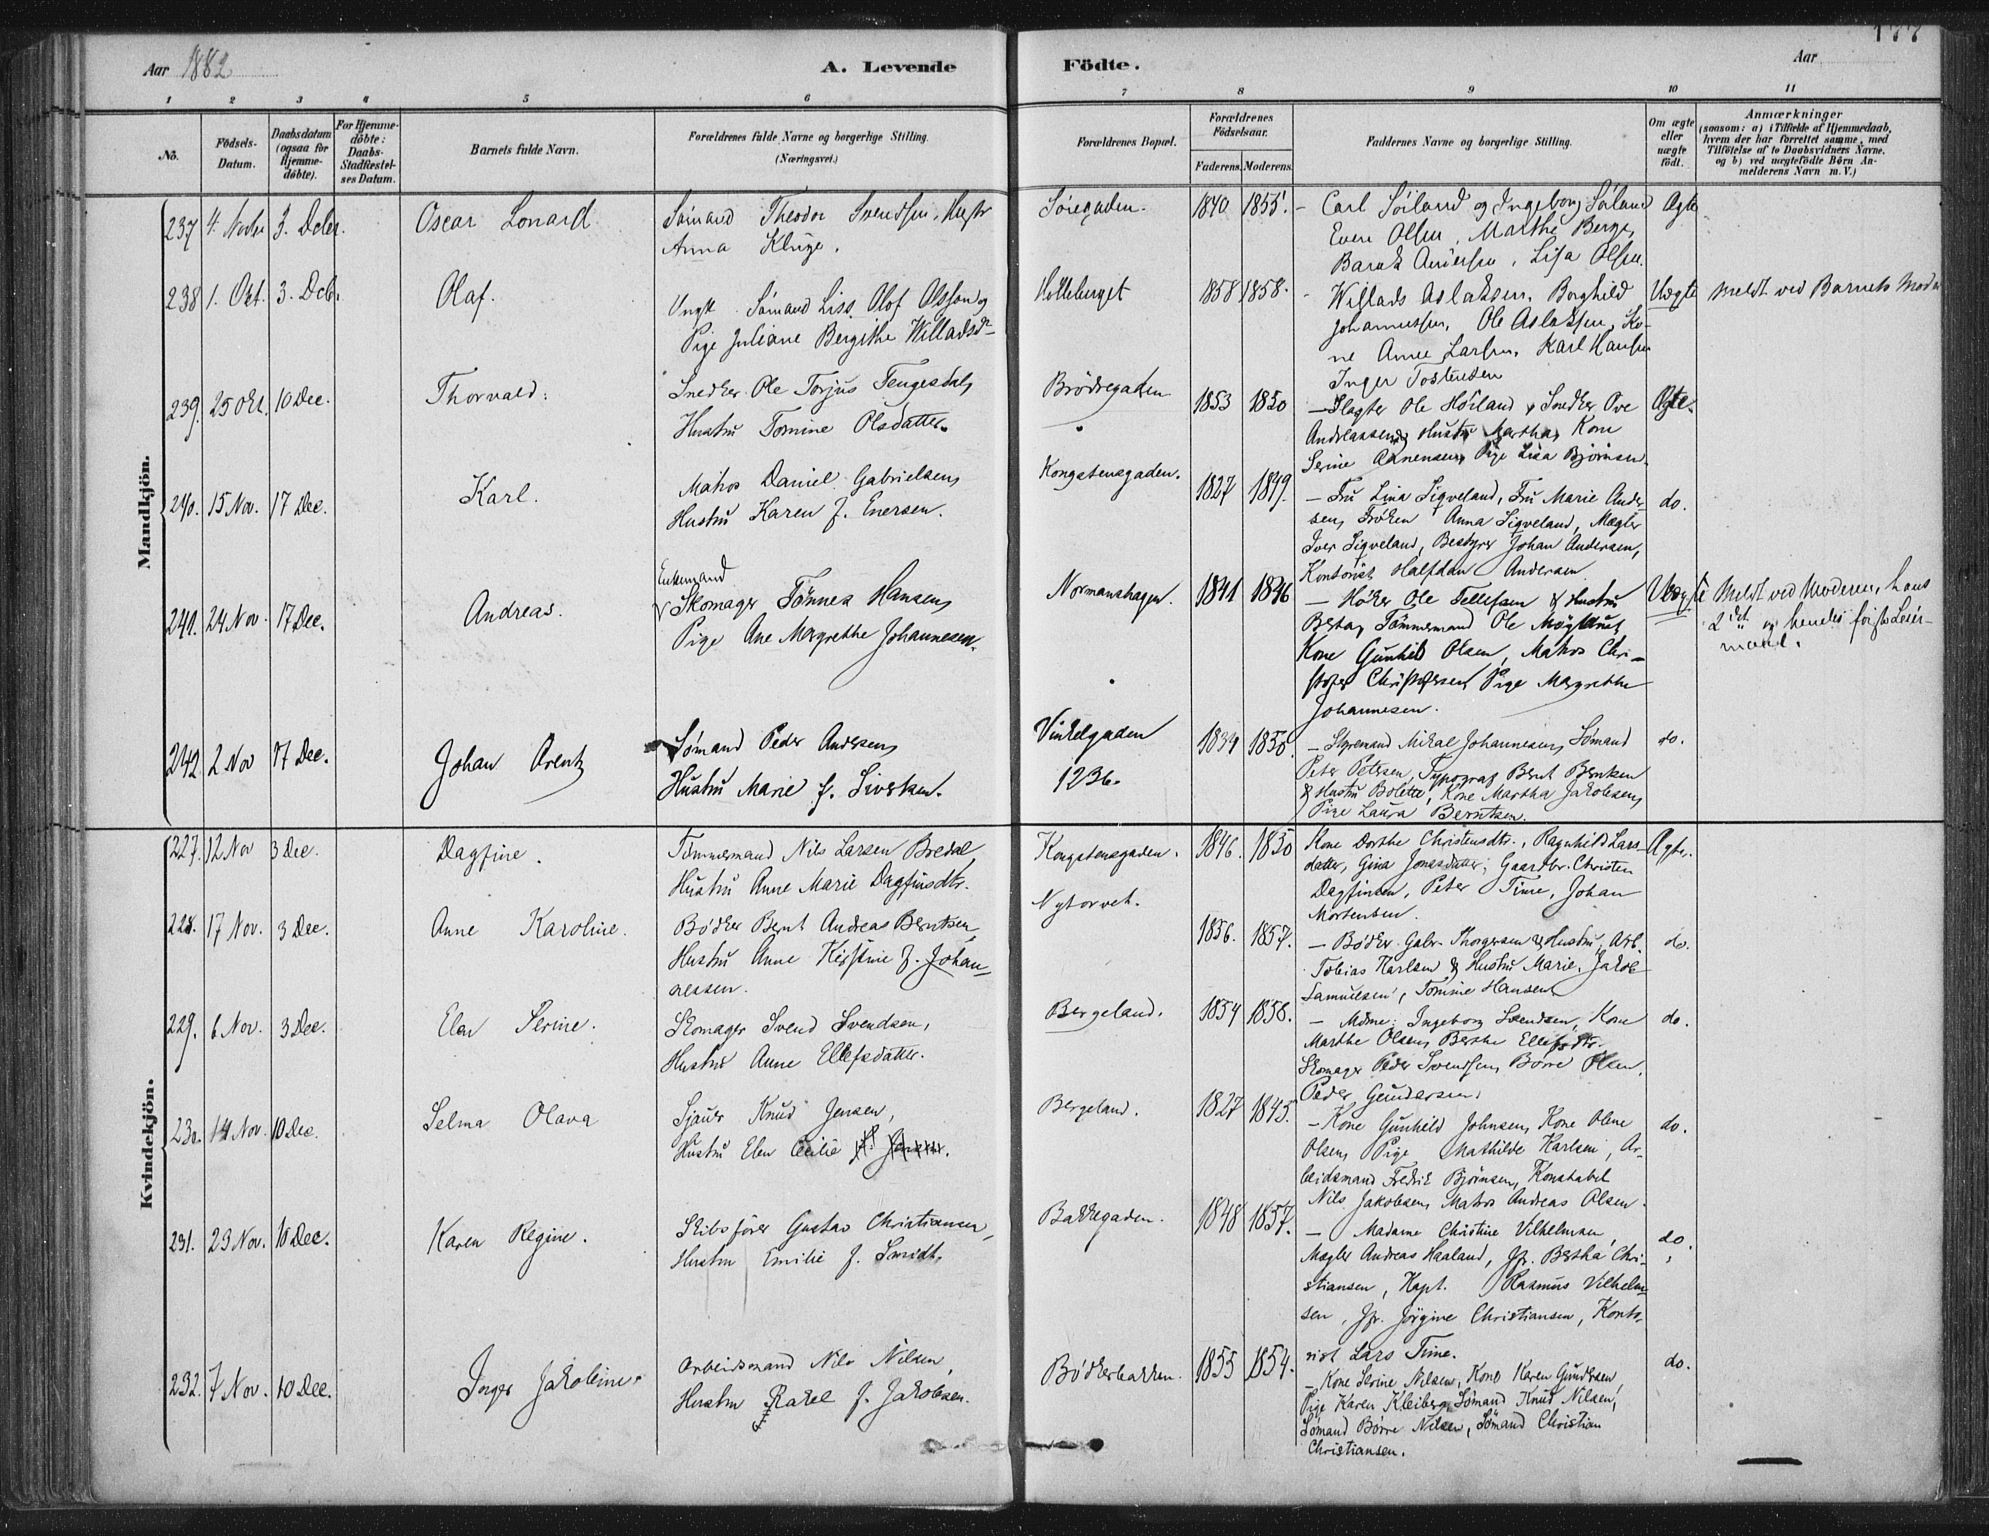 177
Aar 1882
A. Levende
Födte.
Aar
1 2 3 4 5 6 7 8 9 10 11
No.
Födsels-Datum.
Daabsdatum (ogsaa for Hjemme-döbte).
For Hjemme-döbte: Daabs-Stadfæstel-ses Datum.
Barnets fulde Navn.
Forældrenes fulde Navne og borgerlige Stilling. (Næringsvei.)
Forældrenes Bopæl.
Forældrenes Födselsaar.
Faderens. Moderens.
Faddernes Navne og borgerlige Stilling.
Om ægte eller uægte födt.
Anmærkninger
(saasom: a) i Tilfælde af Hjemmedaab, hvem der har forrettet samme, med Tilföielse af to Daabsvidners Navne, og b) ved uægtefödte Börn An-melderens Navn m. V.)
Mandkjön.
237 4. Novbr 3. Decbr. Oscar Lonard
Sømand Theodor Svendsen, Hustr
Anna Kluge.
Søregaden. 1840 1855.
- Carl Söiland og Ingeborg Söiland
Even Olsen, Marthe Berge,
Andersen, Lisa Olsen.
Ægte
238 1. Okt. 3. Dcb. Olaf.
Ungk. Sømand Liss Olof Olsson og
Pige Juliane Bergithe Willadsdr
Holleberget 1858 1858.
- Willads Aslaksen, Borghild
Johannessen, Ole Aslaksen, Ko-
ne Anne Larsen, Karl Hansen
Inger Tostensen
Uægte
Meldt ved Barnets Moder
239. 25 Okt. 10 Dec. Thorvald.
Snedker Ole Torjus Tengesdal,
Hustru Tomine Olsdatter.
Brödregaden 1853 1850
- Slagter Ole Höiland, Snedker Ove
Andreassen, Hustru Martha, Kone
Serine Arnensen, Pige Lisa Bjørnsen
Ægte.
240. 15 Nov. 17 Dec. Karl.
Matros Daniel Gabrielsen,
Hustru Karen f. Enersen.
Kongstensgaden. 1827 1849.
- Fru Lina Sigveland, Fru Marie Ander-
sen, Frøken Anna Sigveland, Mægler
Iver Sigveland, Bestyrer Johan Andersen,
Kontorist Halfdan Andersen
do.
241. 24 Nov. 17 Dec. Andreas.
Enkemand
Skomager Tönnes Hansen,
Pige Ane Margrethe Johannesen.
Normanshagen. 1841 1846
- Höker Ole Tellefsen & Hustru
Berta, Tømmermand Ole
Kone Gunhild Olsen, Matros Chri-
stofer Christofersen, Pige Margrethe
Johannesen.
Uægte
Meldt ved Moderen, hans
2det og hendes første Leier-
maal.
242. 2 Nov 17 Dec. Johan Arentz
Sømand Peder Andersen,
Hustru Marie f. Sivertsen.
Vinkelgaden
1236.
1834 1850.
- Styrmand Mikal Johannesen, Sømand
Peter Petersen, Typograf Bernt Berntsen
& Hustru Bolette, Kone Martha Jakobsen,
Pige Laura Berntsen.
do.
Kvindekjön.
227. 12 Nov 3 Dec. Dagfine.
Tømmermand Nils Larsen Bredal,
Hustru Anne Marie Dagfinsdtr.
Kongstensgaden. 1846. 1850
Kone Dorthe Christensdtr., Ragnhild Lars-
datter, Gina Jonasdatter, Gaardbr. Christen
Dagfinsen, Peter Time, Johan
Mortensen.
Ægte.
228. 17 Nov. 3 Dec. Anne Karoline.
Bødker Bernt Andreas Berntsen
Hustru Anne Kirstine f. Johan-
nessen.
Nytorvet. 1856. 1857.
- Bødker Gabr. Thorgersen & Hustru, Arb.
Tobias Karlsen & Hustru Marie, Jakob
Samuelsen, Tomine Hansen
do.
229. 6 Nov. 3 Dec. Elen Serine.
Skomager Svend Svendsen,
Hustru Anne Ellefsdatter.
Bergeland. 1854 1858.
- Mdme. Ingeborg Svendsen, Kone
Marthe Olsen, Berthe Ellefsdtr.
Skomager Peder Svendsen, Børre Olsen,
Peder Gundersen.
do.
230. 14 Nov. 10 Dec. Selma Olava
Sjauer Knud Jensen,
Hustru Elen Cecilie f. Jensen.
Bergeland. 1827 1845.
- Kone Gunhild Johnsen, Kone Oline
Olsen, Pige Mathilde Karlsen, Ar-
beidsmand Fredrik Bjørnsen, Konstabel
Nils Jakobsen, Matros Andreas Olsen.
do.
231. 23 Nov. 10 Dec. Karen Regine.
Skibsfører Gustav Christiansen,
Hustru Emilie f. Smidt.
Bakkegaden. 1848 1857.
- Madame Christine Vilhelmsen,
Mægler Andreas Haaland, Jfr. Bertha Chri-
stiansen, Kapt. Rasmus Vilhelm-
sen, Jfr. Jörgine Christiansen, Konto-
rist Lars Time.
do.
232. 7 Nov. 10 Dec. Inger Jakobine.
Arbeidsmand Nils Nilsen,
Hustru Rakel f. Jakobsen.
Bødkerbakken. 1855 1854.
- Kone Serine Nilsen, Kone Karen Gundersen,
Pige Karen Kleiberg, Sømand Knud Nilsen,
Sømand Børre Nilsen, Sømand Christian
Christiansen.
do.